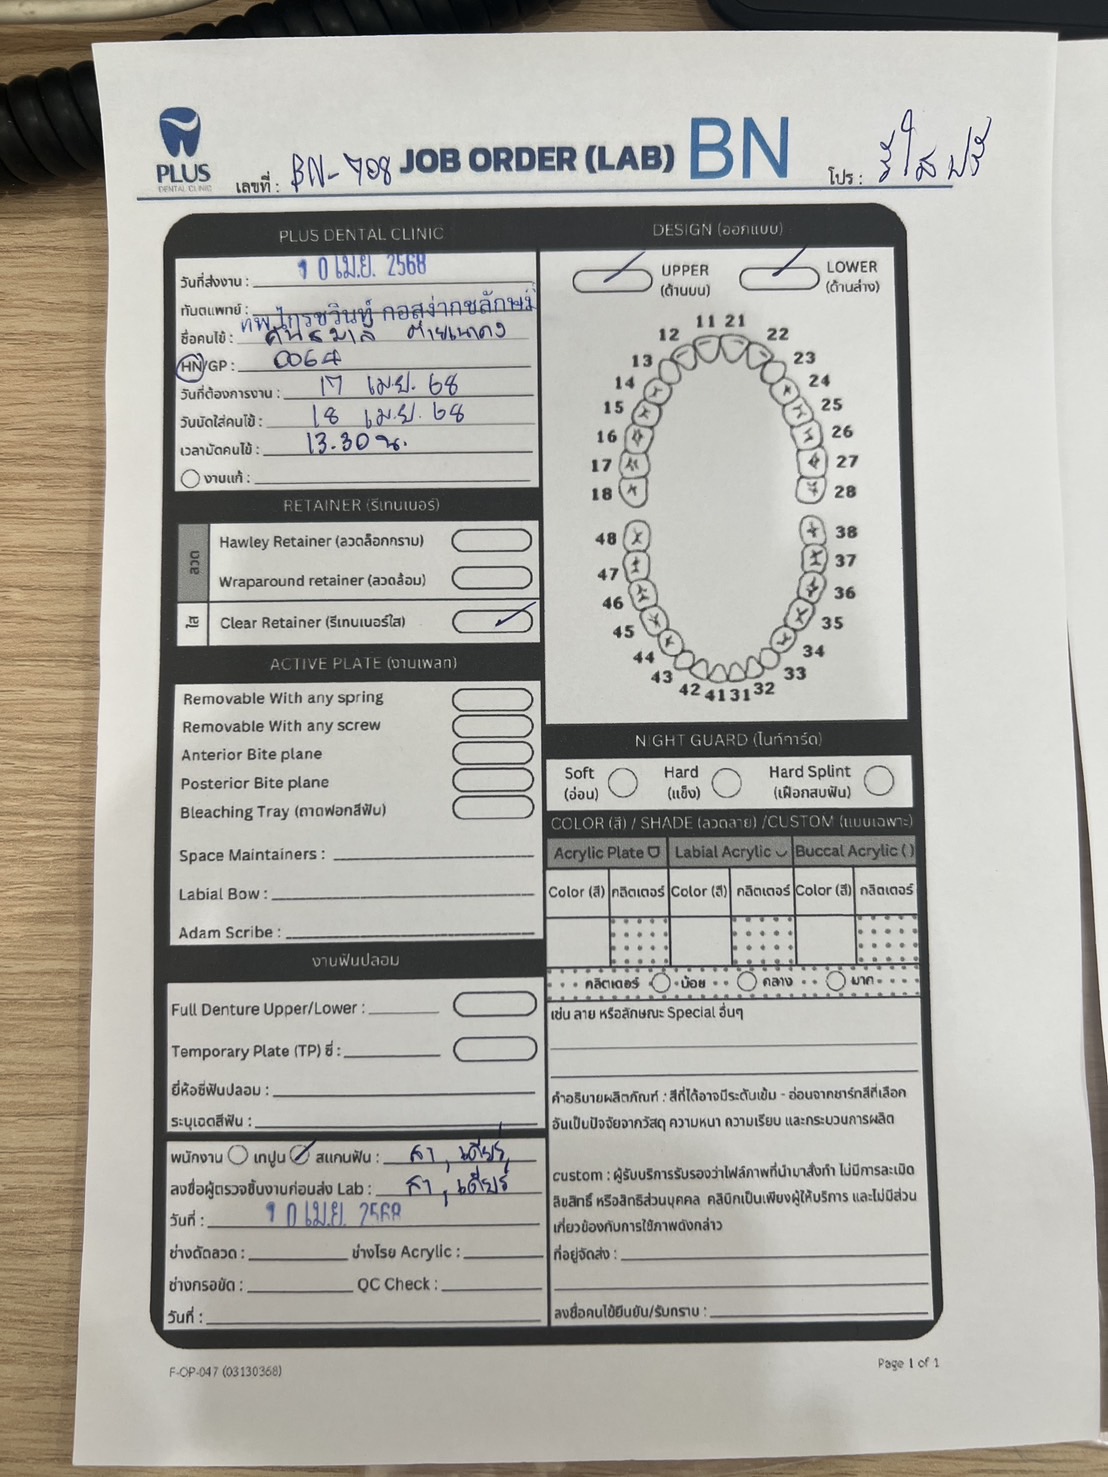 PLUS
DENTAL CLINIC
เลขที่ : BN-708
JOB ORDER (LAB) BN
โปร : รีใสฟรี
PLUS DENTAL CLINIC
วันที่ส่งงาน : 10 เม.ย. 2568
ทันตแพทย์ : ทพ.ไกรชวินทู์
ชื่อคนไข้ :
HN/GP : 0064
วันที่ต้องการงาน : 17 เม.ย. 68
วันนัดใส่คนไข้ : 18 เม.ย. 68
เวลานัดคนไข้ : 13.30 น.
งานแก้ :
RETAINER (รีเทนเนอร์)
ลวด
Hawley Retainer (ลวดล็อกกราม)
Wraparound retainer (ลวดล้อม)
ใส
Clear Retainer (รีเทนเนอร์ใส)
ACTIVE PLATE (งานเพลท)
Removable With any spring
Removable With any screw
Anterior Bite plane
Posterior Bite plane
Bleaching Tray (ถาดฟอกสีฟัน)
Space Maintainers :
Labial Bow :
Adam Scribe :
งานฟันปลอม
Full Denture Upper/Lower :
Temporary Plate (TP) ซี่ :
ยี่ห้อซี่ฟันปลอม :
ระบุเฉดสีฟัน :
พนักงาน เทปูน สแกนฟัน : สา, เดียร์
ลงชื่อผู้ตรวจชิ้นงานก่อนส่ง Lab : สา, เดียร์
วันที่ : 10 เม.ย. 2568
ช่างดัดลวด : ช่างโรย Acrylic :
ช่างกรอขัด : QC Check :
วันที่ :
DESIGN (ออกแบบ)
UPPER
(ด้านบน)
LOWER
(ด้านล่าง)
11 21
12 22
13 23
14 24
15 25
16 26
17 27
18 28
48 38
47 37
46 36
45 35
44 34
43 33
42 41 31 32
NIGHT GUARD (ไนท์การ์ด)
Soft
(อ่อน)
Hard
(แข็ง)
Hard Splint
(เฝือกสบฟัน)
COLOR (สี) / SHADE (ลวดลาย) /CUSTOM (แบบเฉพาะ)
Acrylic Plate Labial Acrylic Buccal Acrylic ( )
Color (สี) กลิตเตอร์ Color (สี) กลิตเตอร์ Color (สี) กลิตเตอร์
กลิตเตอร์ น้อย กลาง มาก
เช่น ลาย หรือลักษณะ Special อื่นๆ
คำอธิบายผลิตภัณฑ์ : สีที่ได้อาจมีระดับเข้ม - อ่อนจากชาร์ทสีที่เลือก
อันเป็นปัจจัยจากวัสดุ ความหนา ความเรียบ และกระบวนการผลิต
custom : ผู้รับบริการรับรองว่าไฟล์ภาพที่นำมาสั่งทำ ไม่มีการละเมิด
ลิขสิทธิ์ หรือสิทธิส่วนบุคคล คลินิกเป็นเพียงผู้ให้บริการ และไม่มีส่วน
เกี่ยวข้องกับการใช้ภาพดังกล่าว
ที่อยู่จัดส่ง :
ลงชื่อคนไข้ยืนยัน/รับทราบ :
F-OP-047 (03130368)
Page 1 of 1